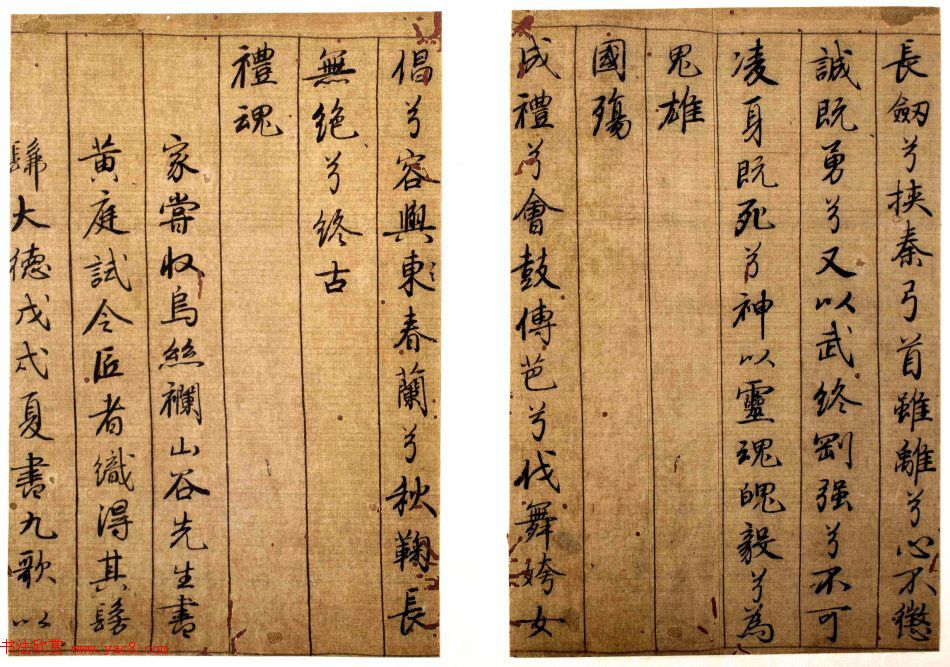 長劔兮挾秦弓首雖離兮心不懲
誠既勇兮又以武終剛强兮不可
凌身既死兮神以靈魂魄毅兮為
鬼雄
國殤
成禮兮會鼓傳芭兮代舞姱女
倡兮容與東春蘭兮秋鞠長
無絶兮終古
禮魂
家嘗收烏絲襴山谷先生書
黄庭試令匠者織得其髣
髴大德戊戌夏書九歌以
书法欣赏 www.yac8.com